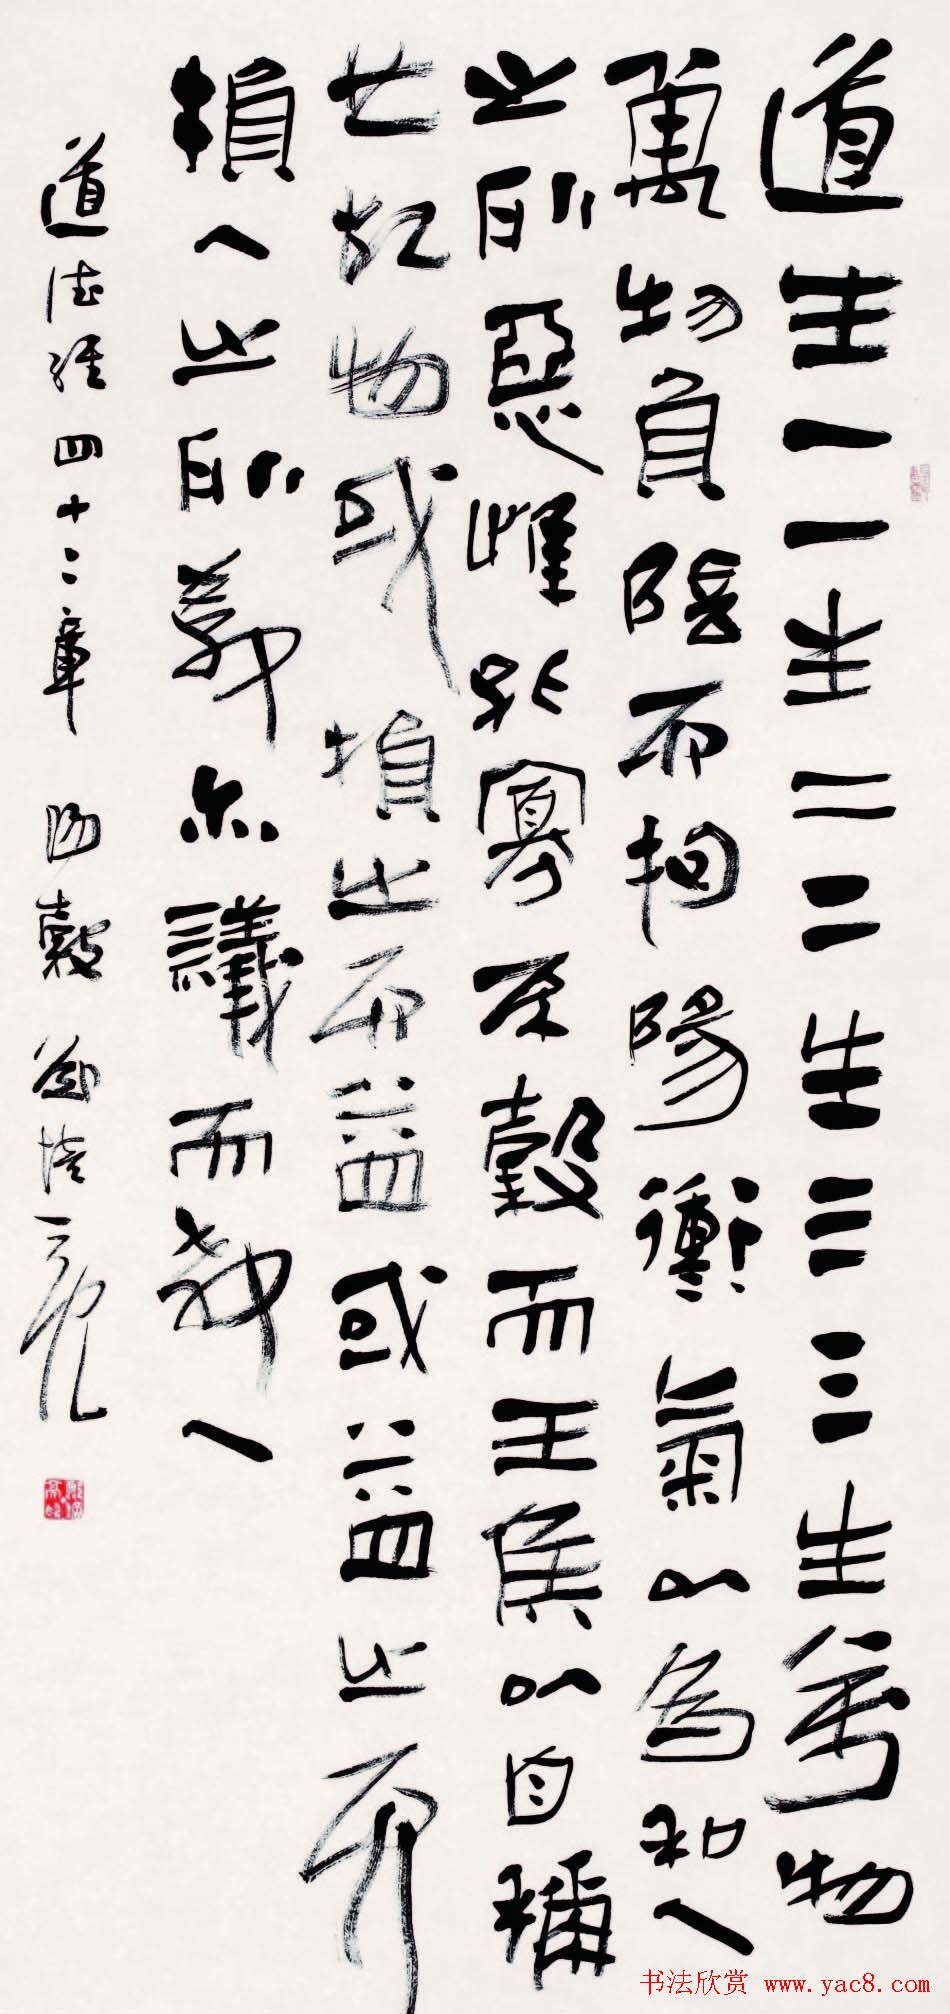 道生一一生二二生三三生萬物
萬物負陰而抱陽衝氣以為和人
之所惡唯孤寡不穀而王侯以自稱
也故物或損之而益或益之而
損人之所教亦議而教人
道德經四十二章 陽穀
书法欣赏 www.yac8.com